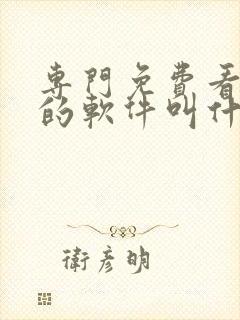 專門免費看
的軟件叫什
衛彥明